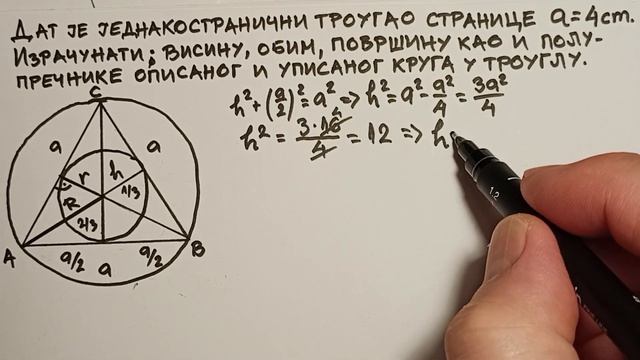 ДАТ ЈЕ ЈЕДНАКОСТРАНИЧНИ ТРОУГАО СТРАНИЦЕ a=4cm.
ИЗРАЧУНАТИ; ВИСИНУ, ОБИМ, ПОВРШИНУ КАО И ПОЛУ-
ПРЕЧНИКЕ ОПИСАНОГ И УПИСАНОГ КРУГА У ТРОУГЛУ.
h²+(a/2)²=a² => h²=a²-a²/4=3a²/4
h²=3·16/4=12 => h
C
a a
r h
R 1/3
2/3
A B
a/2 a/2
a
1.2